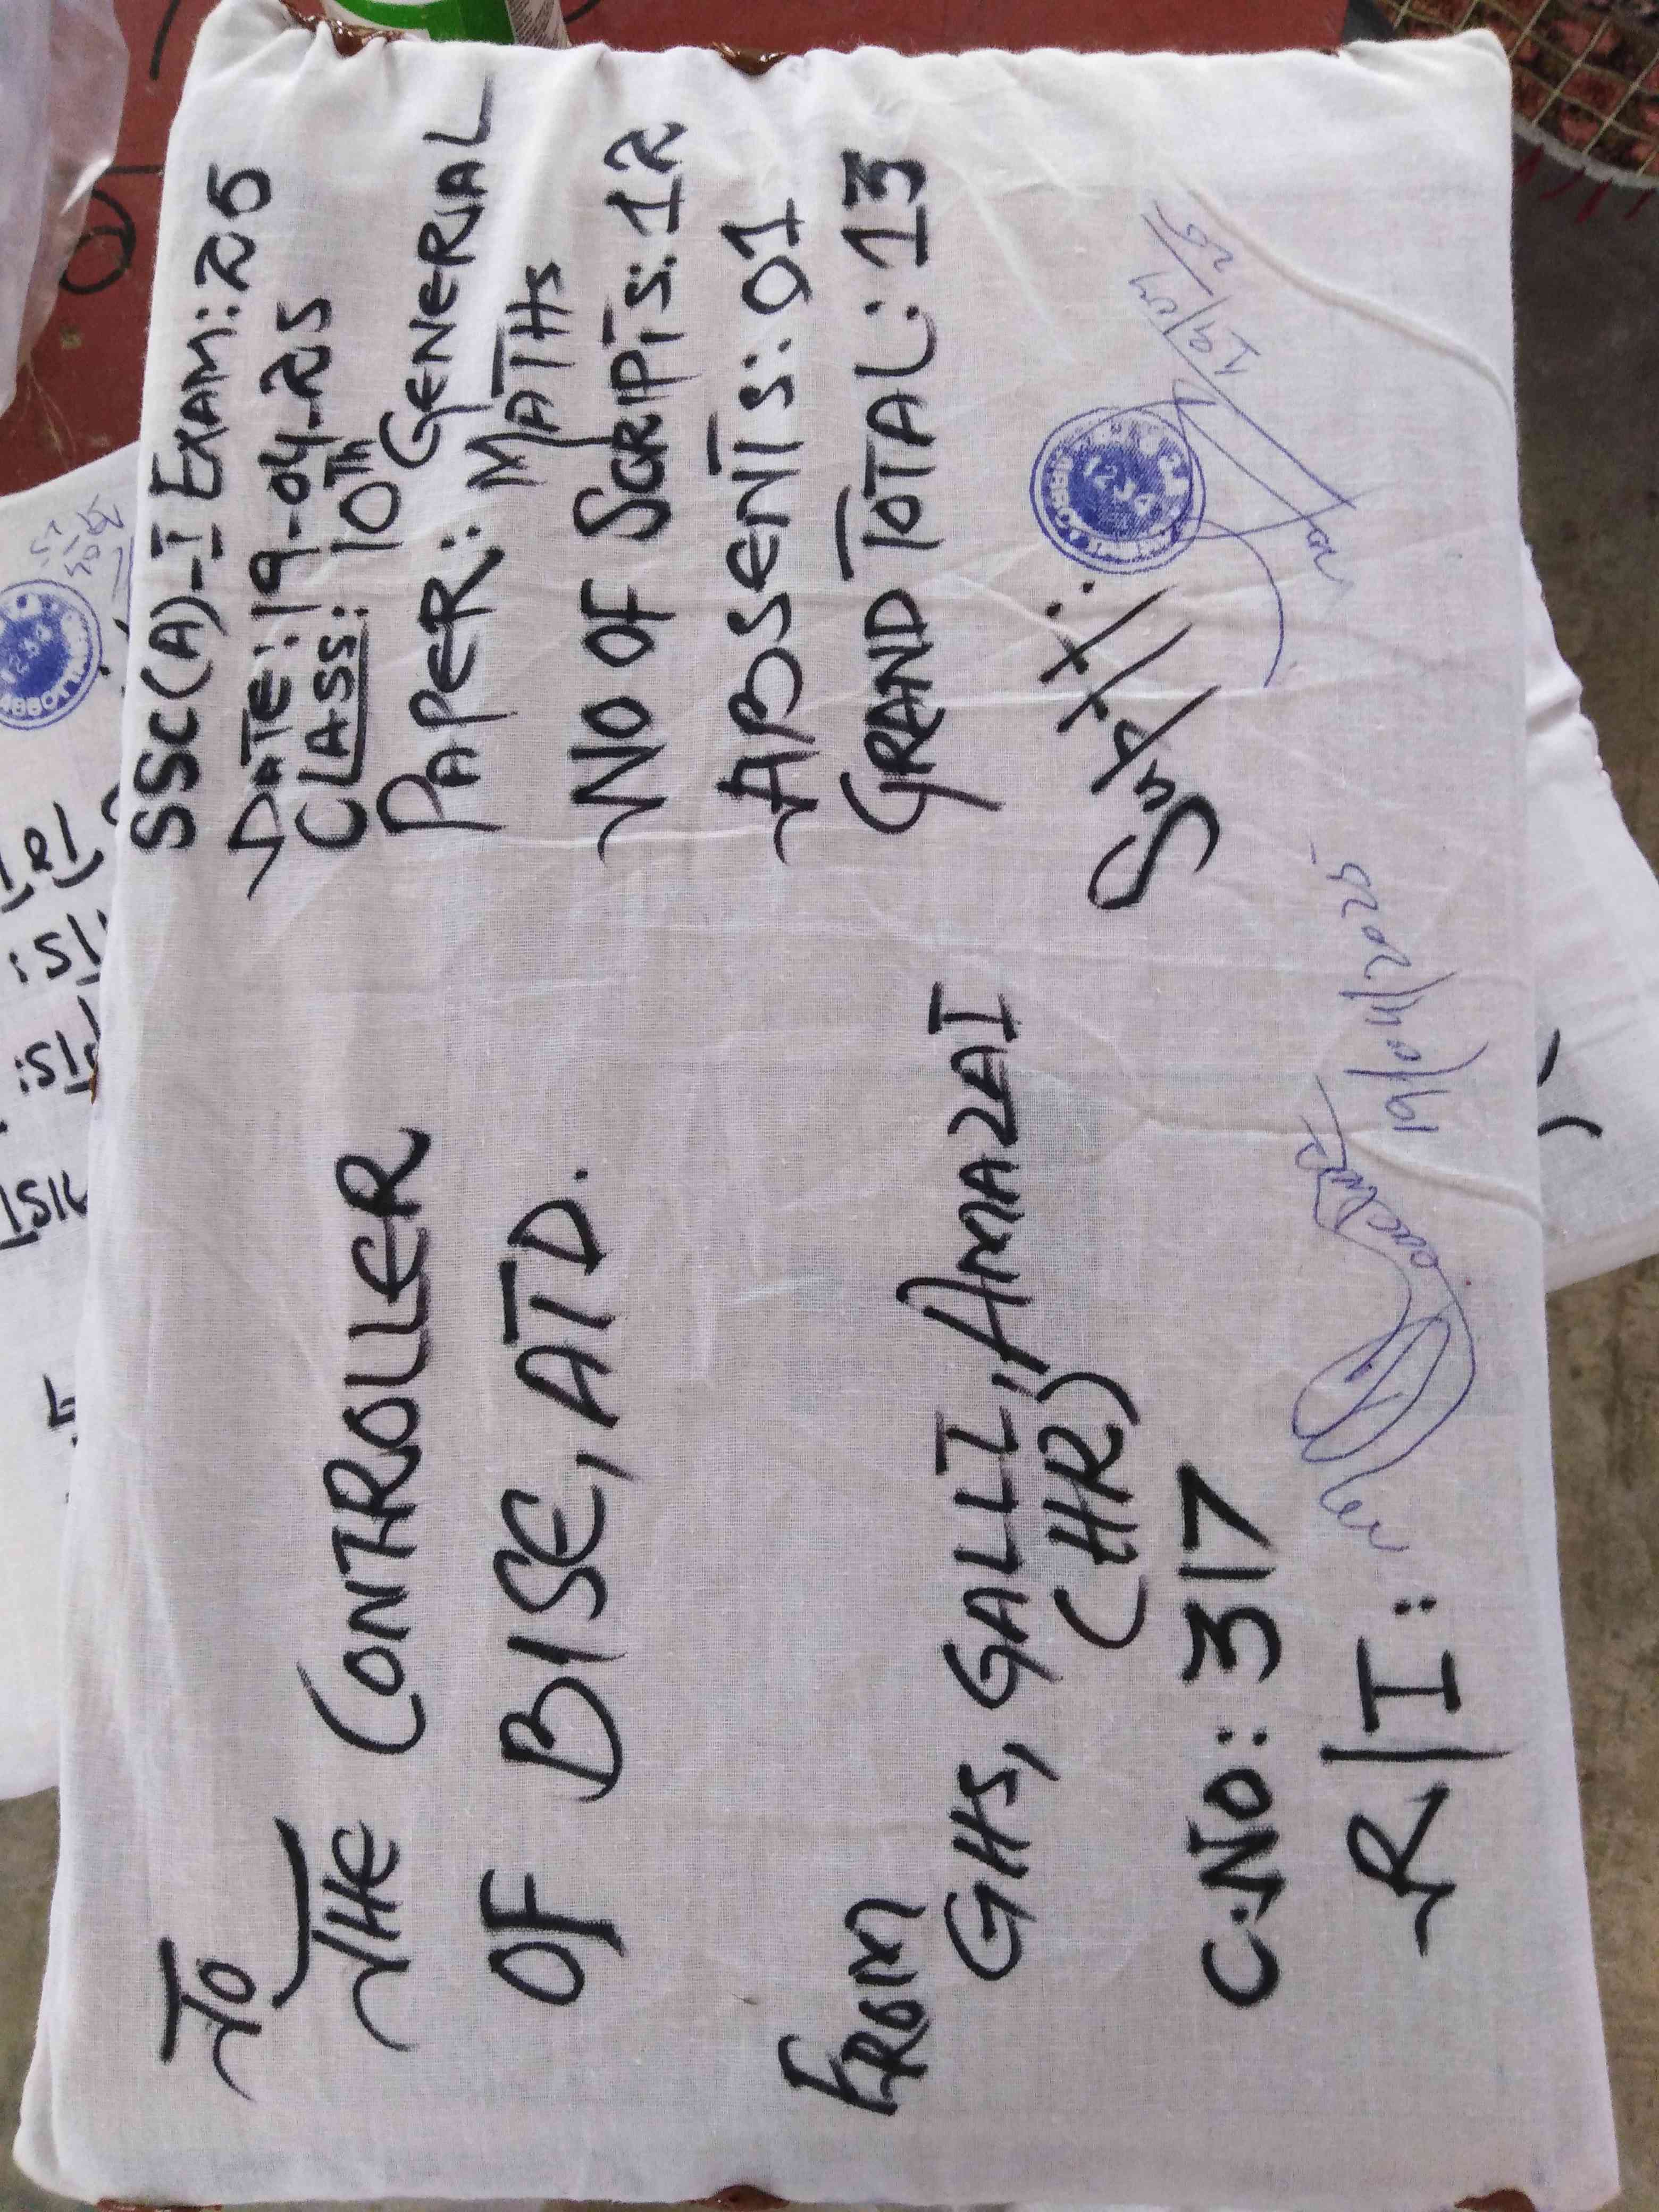 SSC(A)-I EXAM:25
DATE:19-04-25
CLASS: 10Th
PAPER: GENERAL
MATHS
NO OF SCRIPTS:12
ABSENTS: 01
GRAND TOTAL: 13
Supdt:
19/04/25
To
THE CONTROLLER
OF BISE, ATD.
FROM
GHS, GALLI, AMAZAI
(HR)
C.NO: 317
R/I:
19/04/2025